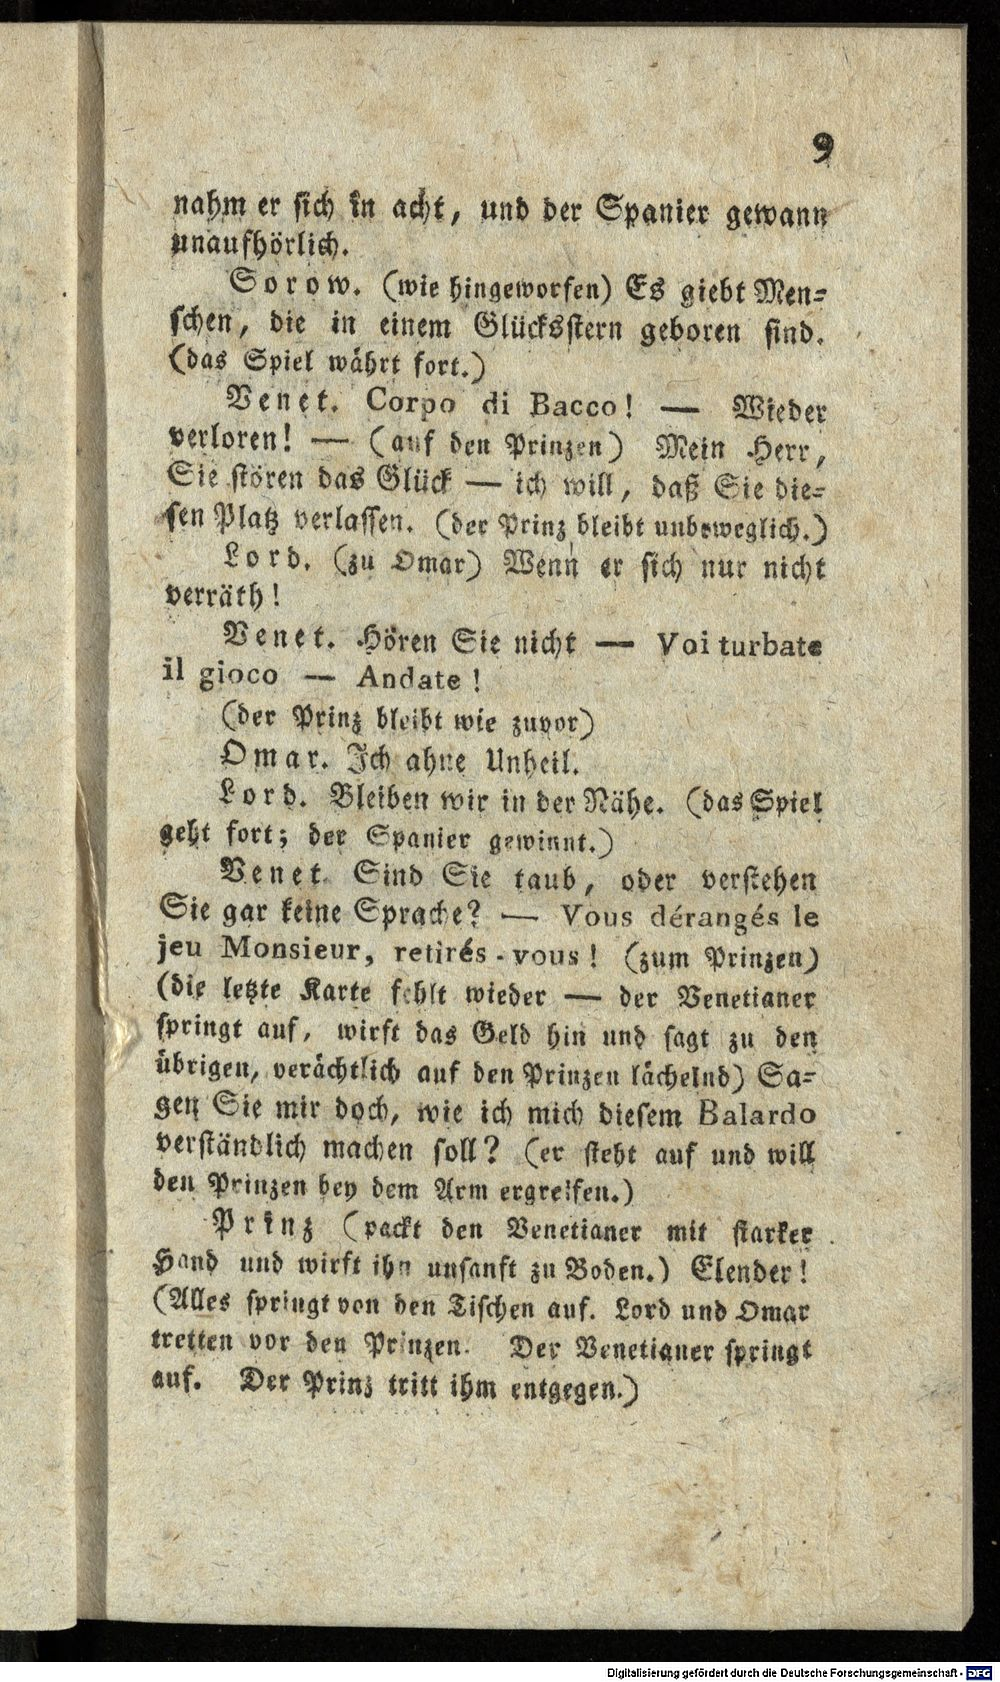 9
nahm er sich in acht, und der Spanier gewann
unaufhörlich.
Sorow. (wie hingeworfen) Es giebt Men-
schen, die in einem Glücksstern geboren sind.
(das Spiel währt fort.)
Venet. Corpo di Bacco! — Wieder
verloren! — (auf den Prinzen) Mein Herr,
Sie stören das Glück — ich will, daß Sie die-
sen Platz verlassen. (der Prinz bleibt unbeweglich.)
Lord. (zu Omar) Wenn er sich nur nicht
verräth!
Venet. Hören Sie nicht — Voi turbate
il gioco — Andate!
(der Prinz bleibt wie zuvor)
Omar. Ich ahne Unheil.
Lord. Bleiben wir in der Nähe. (das Spiel
geht fort; der Spanier gewinnt.)
Venet. Sind Sie taub, oder verstehen
Sie gar keine Sprache? — Vous dérangés le
jeu Monsieur, retirés-vous! (zum Prinzen)
(die letzte Karte fehlt wieder — der Venetianer
springt auf, wirft das Geld hin und sagt zu den
übrigen, verächtlich auf den Prinzen lächelnd) Sa-
gen Sie mir doch, wie ich mich diesem Balardo
verständlich machen soll? (er steht auf und will
den Prinzen bey dem Arm ergreifen.)
Prinz (packt den Venetianer mit starker
Hand und wirft ihn unsanft zu Boden.) Elender!
(Alles springt von den Tischen auf. Lord und Omar
tretten vor den Prinzen. Der Venetianer springt
auf. Der Prinz tritt ihm entgegen.)
Digitalisierung gefördert durch die Deutsche Forschungsgemeinschaft - DFG